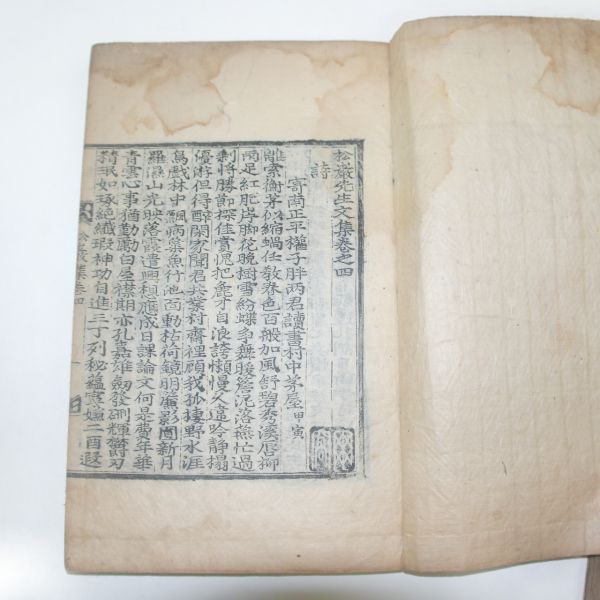 松巖先生文集卷之四
詩
寄南正平權子胖兩君讀書村中茅屋甲寅
離索衡茅似縮蝸任敎春色百般加風舒碧秀溪唇柳
雨足紅肥岸脚花晩樹雪紛蝶爭舞腹泥落燕忙過
剩將勝節探佳賞愧把麁才自浪誇懶慢久違吟靜榻
優游但得醉閑家聞君共業村齋裡顧我孤捿野水涯
鳥戱林中飄病葉魚行池面動枯荷鏡明簾影圓新月
羅濕山光映落霞遣興穩應成日課論文何是費年華
靑雲心事猶勤勵白屋襟期亦孔嘉雄劒發硎輝鬱刃
精珉如琢絶纖瑕神功自進三丁列秘蘊寧嫌二酉遐
集卷四